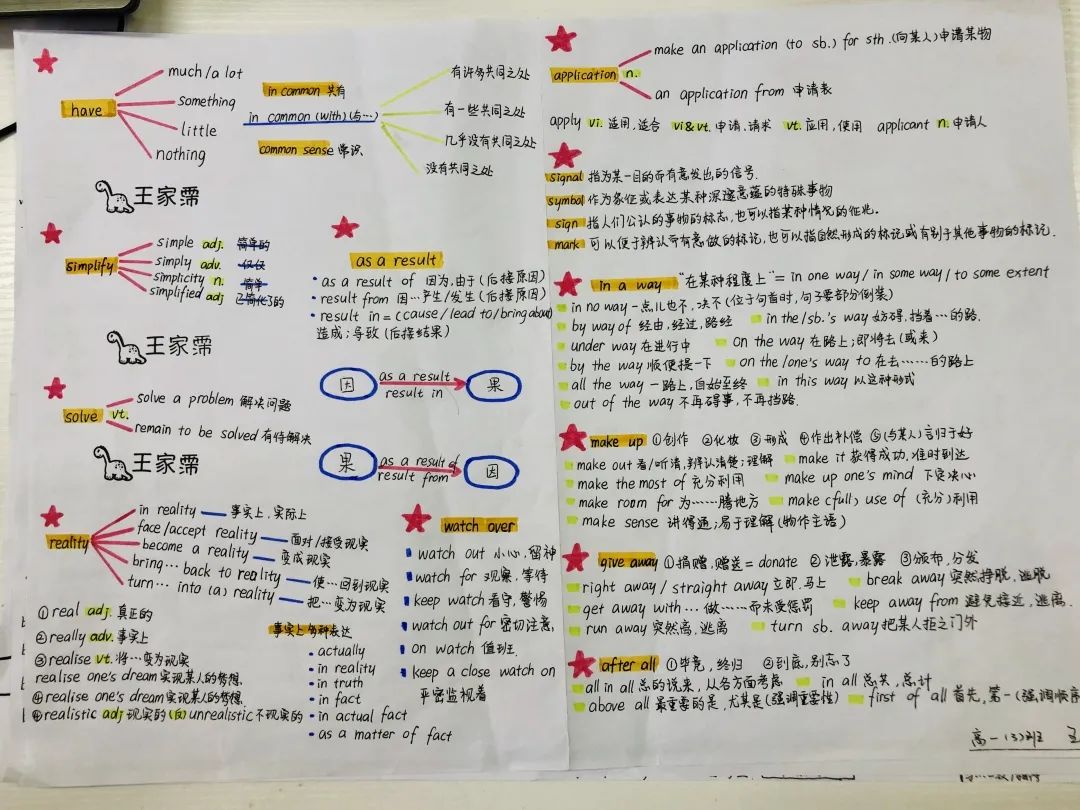 have
much/a lot
something
little
nothing
in common 共有
in common (with) (与…)
common sense 常识
有许多共同之处
有一些共同之处
几乎没有共同之处
没有共同之处
王家霈
simplify
simple adj. 简单的
simply adv. 仅仅
simplicity n. 简单
simplified adj 已简化了的
王家霈
as a result
as a result of 因为,由于(后接原因)
result from 因…产生/发生(后接原因)
result in = (cause/lead to/bring about)
造成;导致(后接结果)
因 as a result 果
result in
果 as a result of 因
result from
solve vt.
solve a problem 解决问题
remain to be solved 有待解决
王家霈
reality
in reality — 事实上,实际上
face/accept reality — 面对/接受现实
become a reality — 变成现实
bring… back to reality — 使…回到现实
turn… into (a) reality — 把…变为现实
①real adj. 真正的
②really adv. 事实上
③realise vt. 将…变为现实
realise one's dream 实现某人的梦想
④realise one's dream 实现某人的梦想
④realistic adj 现实的 (反) unrealistic 不现实的
事实上多种表达
actually
in reality
in truth
in fact
in actual fact
as a matter of fact
watch over
watch out 小心,留神
watch for 观察,等待
keep watch 看守,警惕
watch out for 密切注意,
on watch 值班.
keep a close watch on
严密监视着
application n.
make an application (to sb.) for sth. (向某人)申请某物
an application from 申请表
apply vi. 适用,适合 vi&vt. 申请,请求 vt. 应用,使用 applicant n. 申请人
signal 指为某一目的而有意发出的信号.
symbol 作为象征或表达某种深邃意蕴的特殊事物
sign 指人们公认的事物的标志,也可以指某种情况的征兆.
mark 可以便于辨认而有意做的标记,也可以指自然形成的标记或有别于其他事物的标记.
in a way "在某种程度上" = in one way / in some way / to some extent
in no way 一点儿也不,决不(位于句首时,句子要部分倒装)
by way of 经由,经过,路经 in the/sb.'s way 妨碍,挡着…的路.
under way 在进行中 on the way 在路上;即将去(或来)
by the way 顺便提一下 on the/one's way to 在去……的路上
all the way 一路上,自始至终 in this way 以这种形式
out of the way 不再碍事,不再挡路.
make up ①创作 ②化妆 ③形成 ④作出补偿 ⑤(与某人)言归于好
make out 看/听清,辨认清楚;理解 make it 获得成功,准时到达
make the most of 充分利用 make up one's mind 下定决心
make room for 为……腾地方 make (full) use of (充分)利用
make sense 讲得通;易于理解(物作主语)
give away ①捐赠,赠送 = donate ②泄露,暴露 ③颁布,分发
right away / straight away 立即,马上 break away 突然挣脱,逃脱
get away with… 做……而未受惩罚 keep away from 避免接近,逃离.
run away 突然离,逃离 turn sb. away 把某人拒之门外
after all ①毕竟,终归 ②到底,别忘了
all in all 总的说来,从各方面考虑 in all 总共,总计
above all 最重要的是,尤其是(强调重要性) first of all 首先,第一(强调顺序
高一(3)班 王